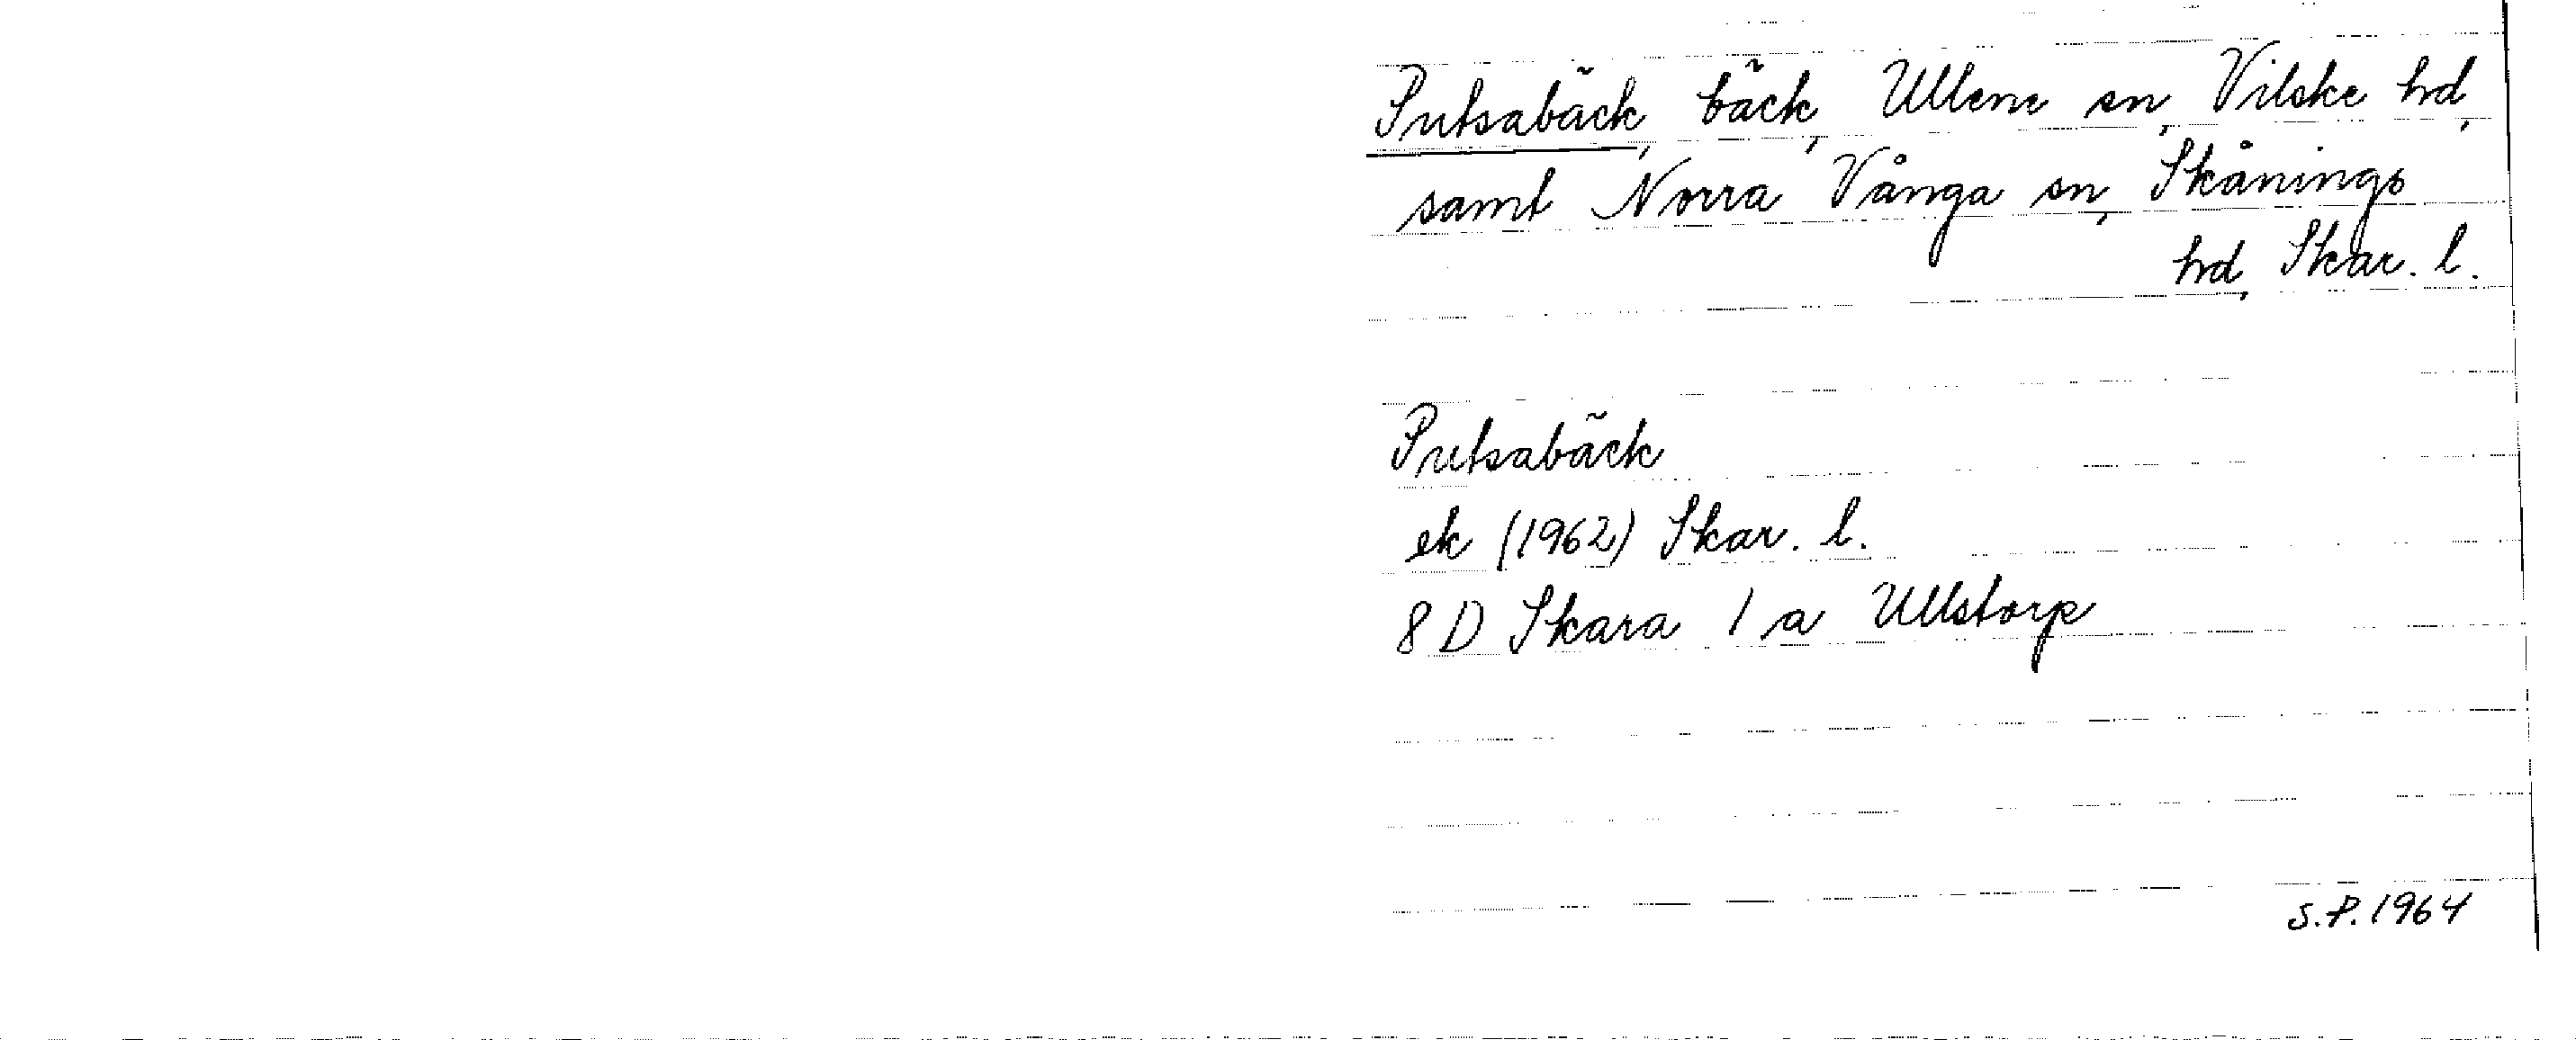 Putsabäck, bäck, Ullene sn, Vilske hd,
samt Norra Vånga sn, Skånings
hd, Skar. l.
Putsabäck
ek (1962) Skar. l.
8 D Skara 1 a Ullstorp
S.P. 1964